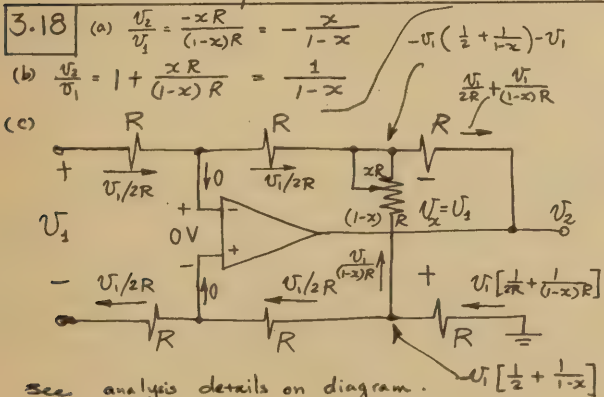 3.18 (a) v₂/v₁ = -xR/(1-x)R = - x/1-x
(b) v₂/v₁ = 1 + xR/(1-x)R = 1/1-x
-v₁(1/2 + 1/1-x) - v₁
v₁/2R + v₁/(1-x)R
(c)
R R R
+ v₁/2R ↓0 v₁/2R xR -
v₁ + 0V - - + (1-x) R vₓ = v₁ v₂
v₁/(1-x)R
- v₁/2R 0 v₁/2R + v₁[1/2R + 1/(1-x)R]
R R R
-v₁[1/2 + 1/1-x]
See analysis details on diagram.